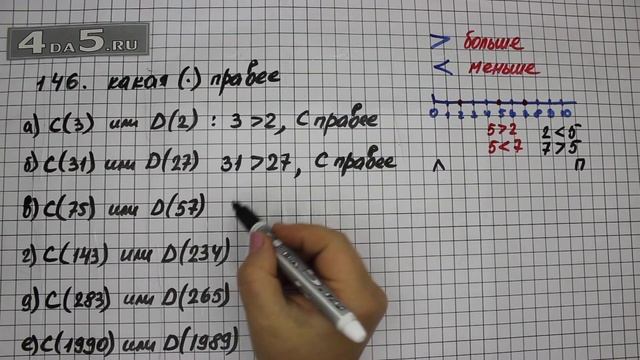 4DA5.RU
146. какая (·) правее
а) C(3) или D(2) : 3 > 2, C правее
б) C(31) или D(27) 31 > 27, C правее
в) C(75) или D(57)
г) C(143) или D(234)
д) C(283) или D(265)
е) C(1990) или D(1989)
> больше
< меньше
0 1 2 3 4 5 6 7 8 9 10
5 > 2 2 < 5
5 < 7 7 > 5
Л П